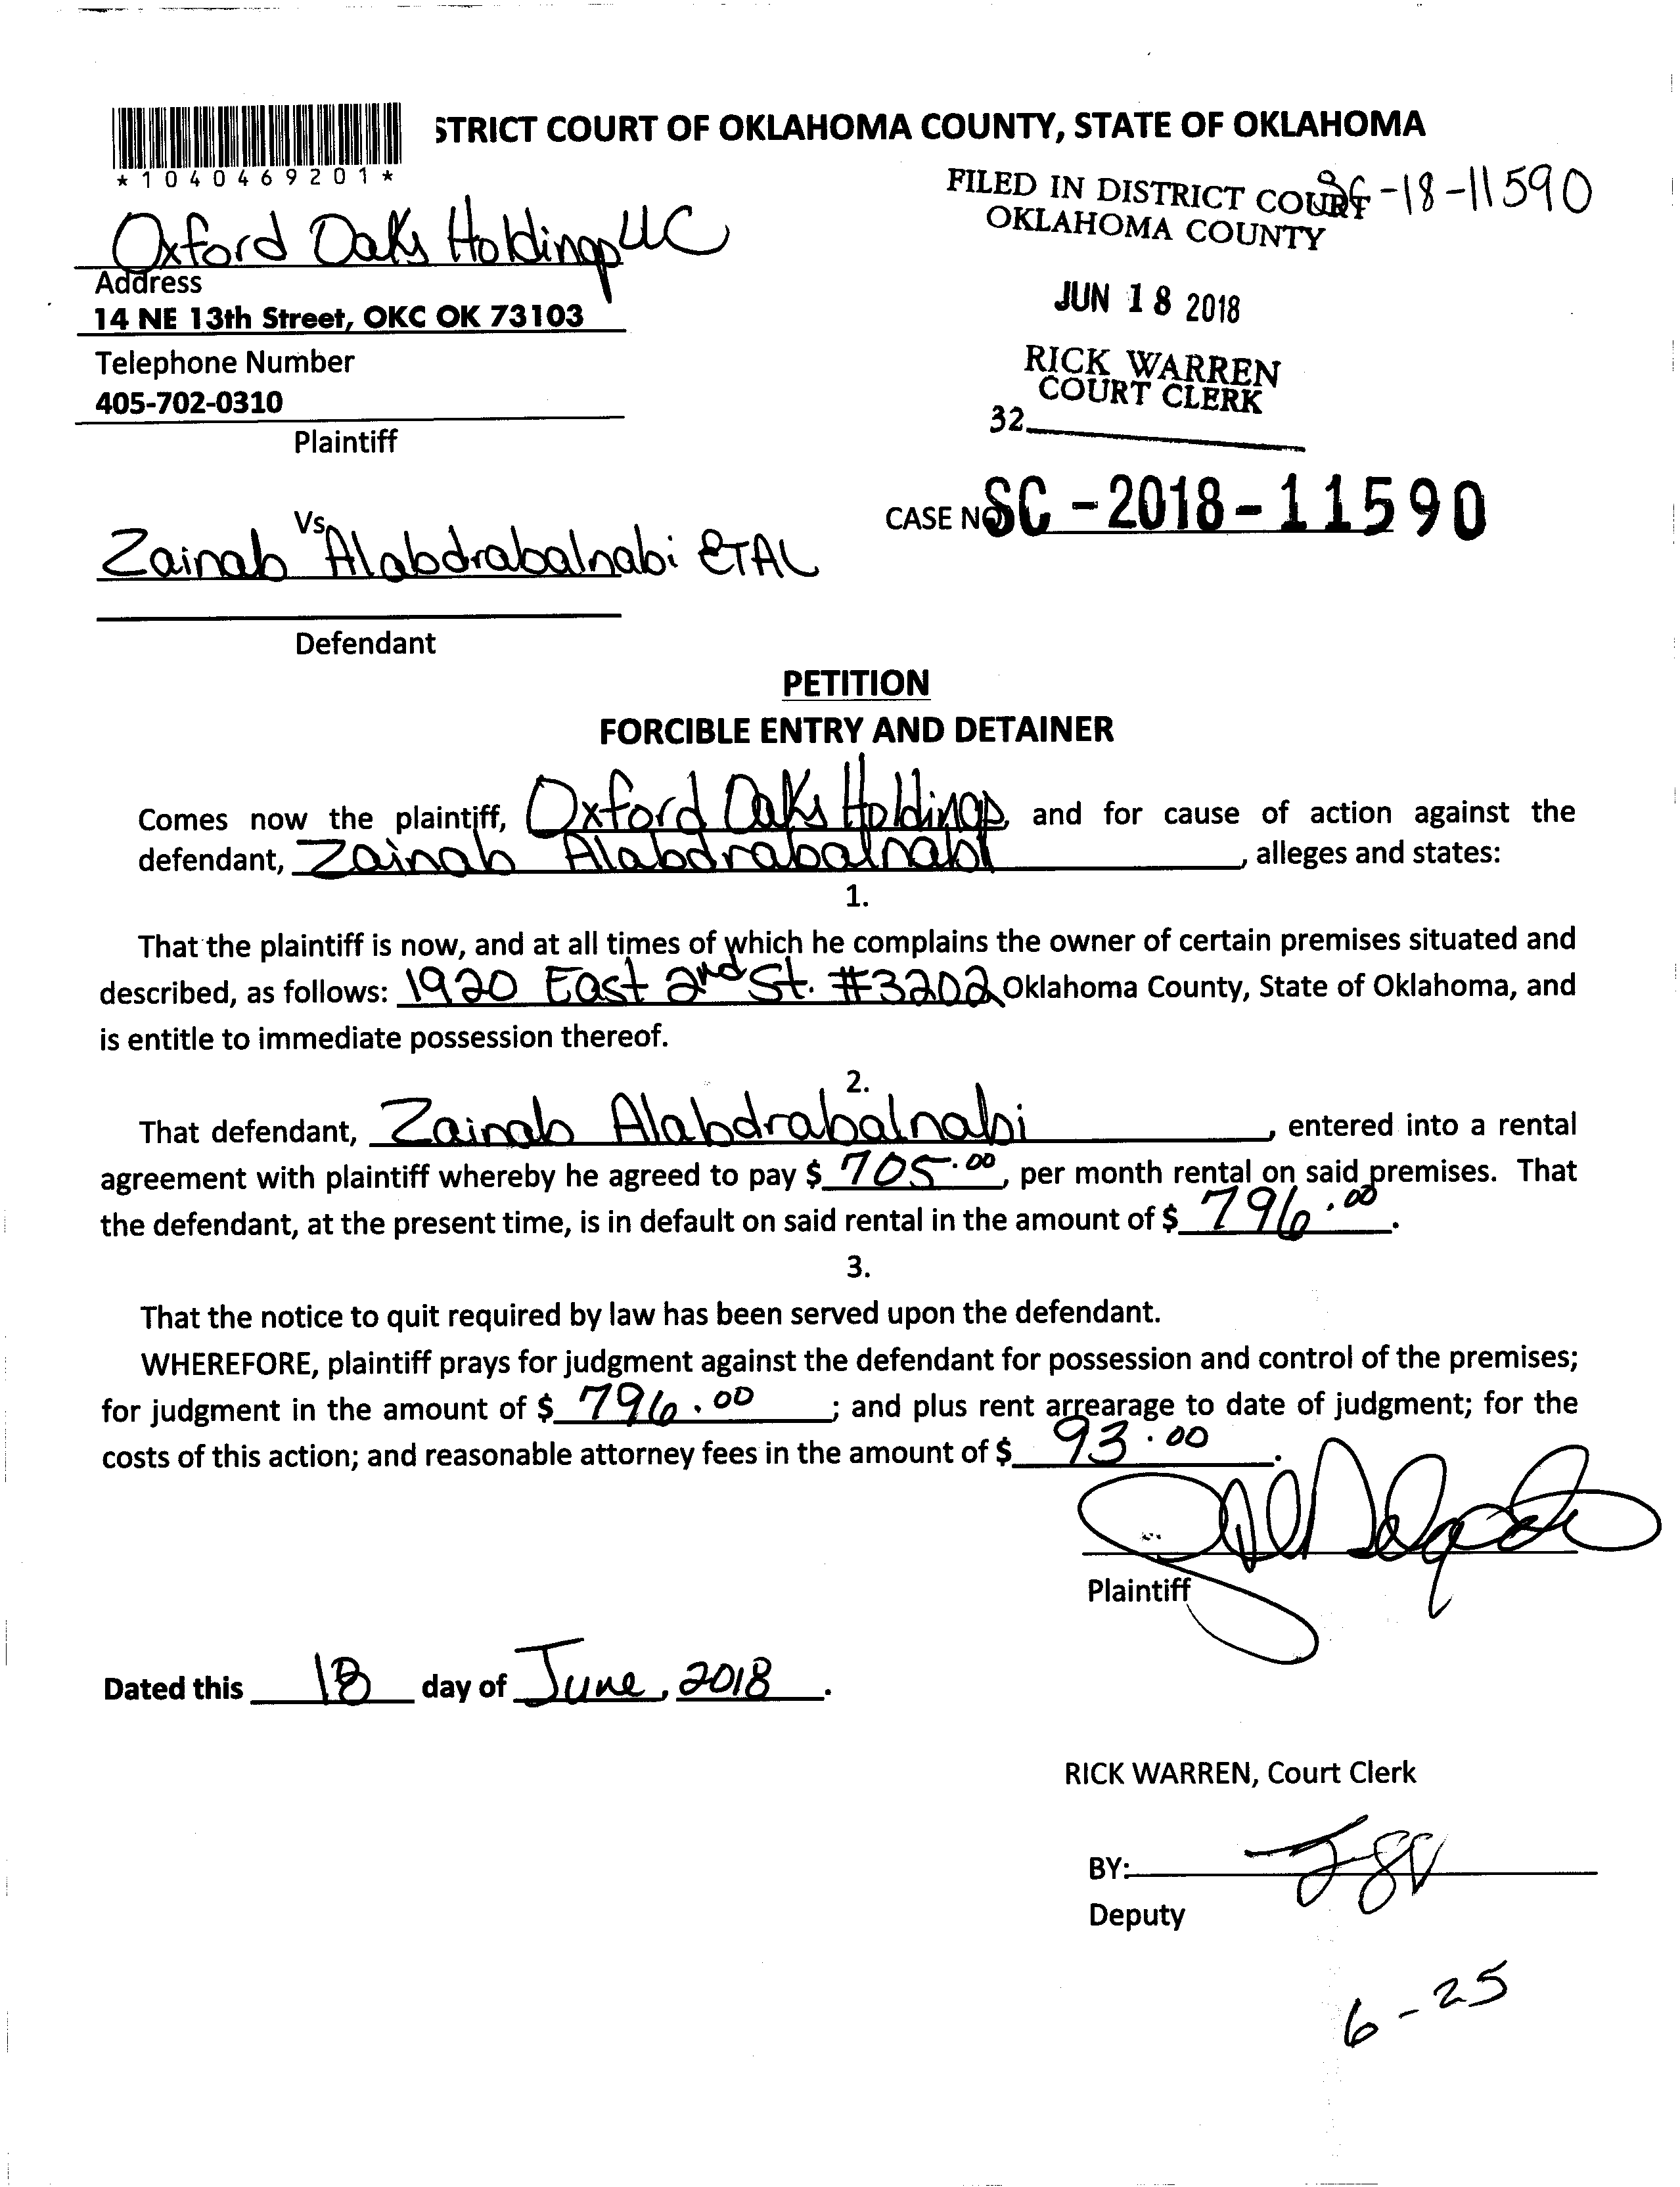 STRICT COURT OF OKLAHOMA COUNTY, STATE OF OKLAHOMA
*1040469201*
FILED IN DISTRICT COURT
OKLAHOMA COUNTY
SC-18-11590
Oxford Oaks Holdings LLC
Address
14 NE 13th Street, OKC OK 73103
JUN 18 2018
Telephone Number
405-702-0310
RICK WARREN
COURT CLERK
32
Plaintiff
Vs
CASE NO SC-2018-11590
Zainab Alabdrabalnabi ETAL
Defendant
PETITION
FORCIBLE ENTRY AND DETAINER
Comes now the plaintiff, Oxford Oaks Holdings, and for cause of action against the
defendant, Zainab Alabdrabalnabi, alleges and states:
1.
That the plaintiff is now, and at all times of which he complains the owner of certain premises situated and
described, as follows: 1920 East 2nd St. #3202 Oklahoma County, State of Oklahoma, and
is entitle to immediate possession thereof.
2.
That defendant, Zainab Alabdrabalnabi, entered into a rental
agreement with plaintiff whereby he agreed to pay $ 705.00, per month rental on said premises. That
the defendant, at the present time, is in default on said rental in the amount of $ 796.00.
3.
That the notice to quit required by law has been served upon the defendant.
WHEREFORE, plaintiff prays for judgment against the defendant for possession and control of the premises;
for judgment in the amount of $ 796.00; and plus rent arrearage to date of judgment; for the
costs of this action; and reasonable attorney fees in the amount of $ 93.00.
Plaintiff
Dated this 18 day of June, 2018.
RICK WARREN, Court Clerk
BY:
Deputy
6-25